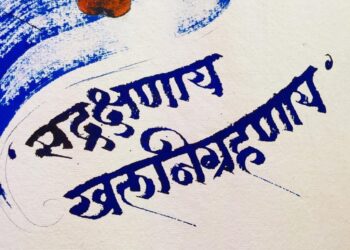 'सद्रक्षणाय
खलनिग्रहणाय'